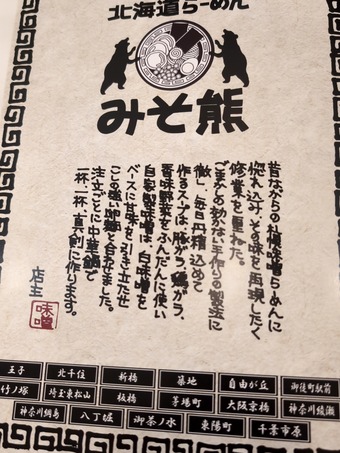 北海道らーめん
みそ熊
昔ながらの札幌味噌らーめんに
惚れ込み、その味を再現したく
修業を重ねた。
ごまかしの効かない手作りの製法に
徹し、毎日丹精込めて
作るスープは、豚ガラ、鶏ガラ、
香味野菜をふんだんに使い
自家製味噌は、白味噌を
ベースに甘味を引き立たせ
こしの強い麺を合わせました。
注文ごとに中華鍋で
一杯一杯、真剣に作ります。
店主
味噌
王子
北千住
新橋
築地
自由が丘
御徒町駅前
竹ノ塚
埼玉東松山
板橋
茅場町
大阪京橋
神奈川綾瀬
神奈川綱島
八丁堀
御茶ノ水
東陽町
千葉市原